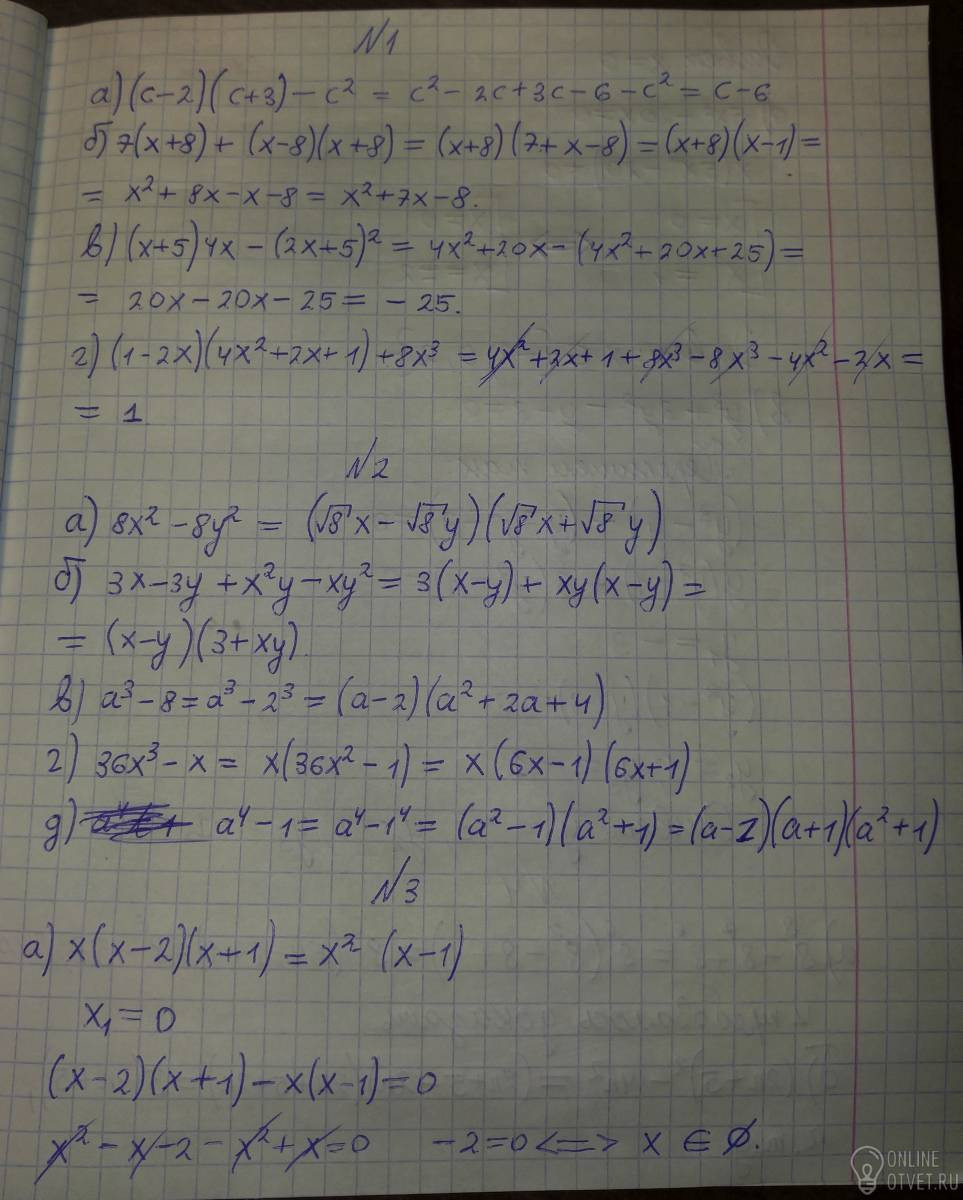 №1
а) (c-2)(c+3)-c² = c²-2c+3c-6-c² = c-6
б) 7(x+8)+(x-8)(x+8) = (x+8)(7+x-8) = (x+8)(x-1) =
= x²+8x-x-8 = x²+7x-8.
в) (x+5)4x-(2x+5)² = 4x²+20x-(4x²+20x+25) =
= 20x-20x-25 = -25.
г) (1-2x)(4x²+2x+1)+8x³ = 4x²+2x+1+8x³-8x³-4x²-2x =
= 1
№2
а) 8x²-8y² = (√8x-√8y)(√8x+√8y)
б) 3x-3y+x²y-xy² = 3(x-y)+xy(x-y) =
= (x-y)(3+xy).
в) a³-8 = a³-2³ = (a-2)(a²+2a+4)
г) 36x³-x = x(36x²-1) = x(6x-1)(6x+1)
д) a⁴-1 = a⁴-1⁴ = (a²-1)(a²+1) = (a-1)(a+1)(a²+1)
№3
а) x(x-2)(x+1) = x² (x-1)
x₁ = 0
(x-2)(x+1)-x(x-1) = 0
x²-x-2-x²+x=0 -2=0 <=> x ∈ ∅.
ONLINE
OTVET.RU